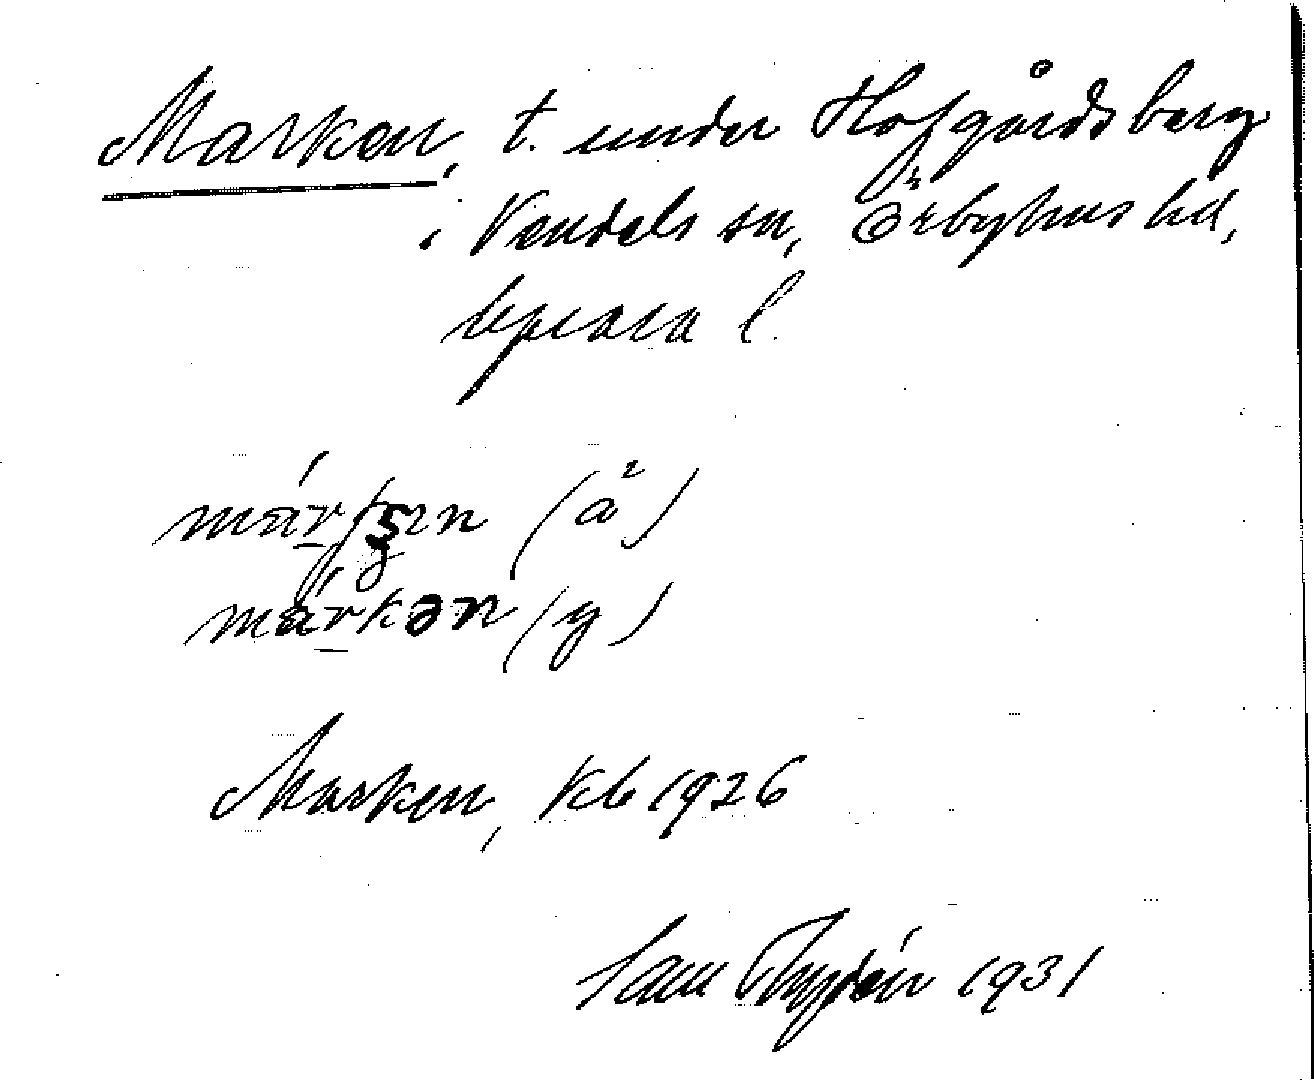 Marken, t. under Hofgårdsberg
i Vendels sn, Örbyhus hd,
Uppsala l.
(ä)
márkən (y)
Marken, Kb 1926
Sam Rydén 1931